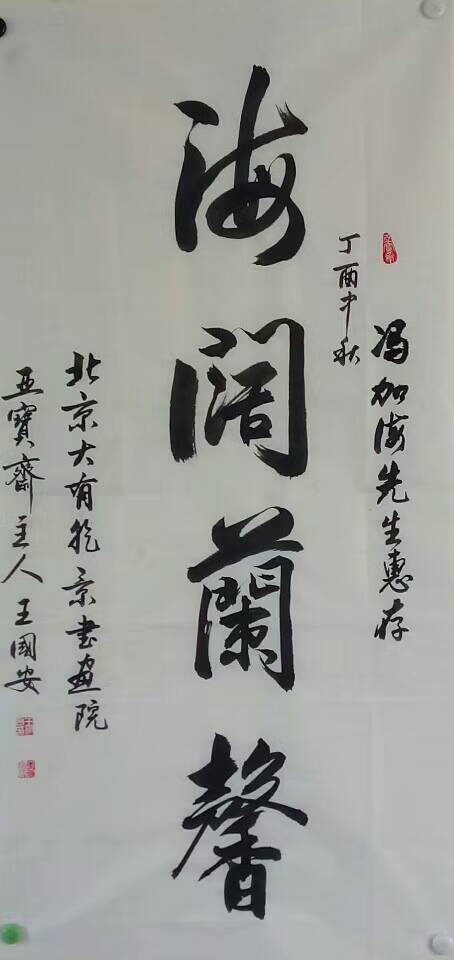 冯加海先生惠存
丁酉中秋
海阔蘭馨
北京大有乾景書畫院
亚寶齋主人王國安